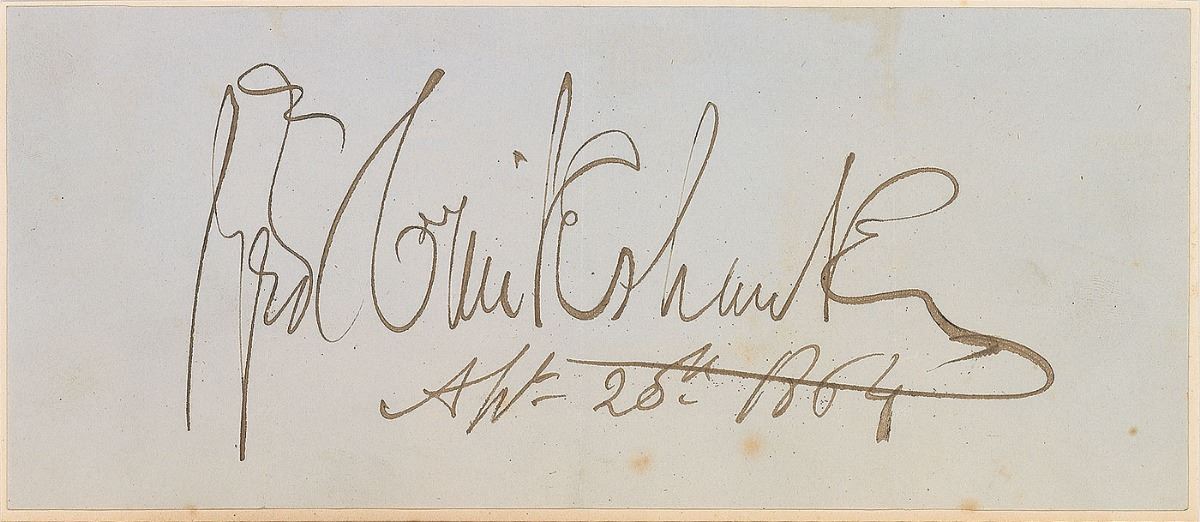 Geo Cruikshank
Apl 25th 1864